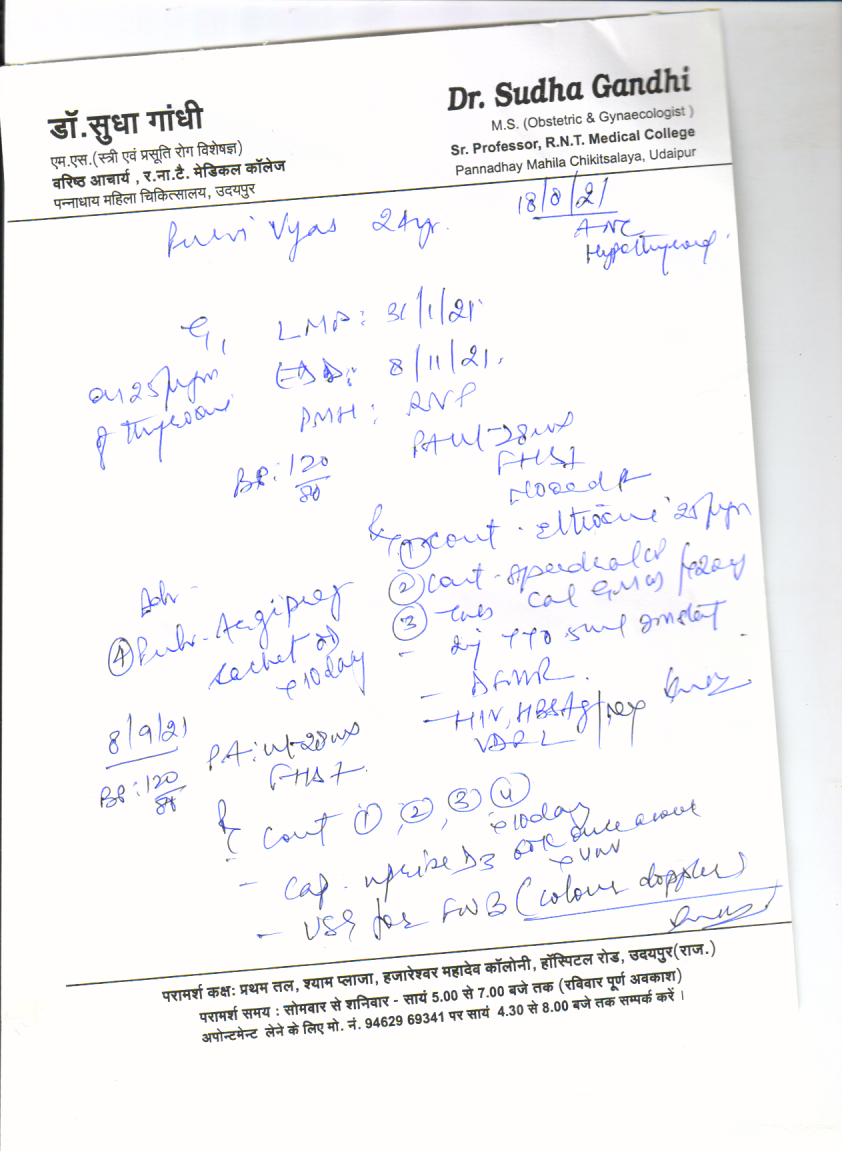 डॉ.सुधा गांधी
एम.एस.(स्त्री एवं प्रसूति रोग विशेषज्ञ)
वरिष्ठ आचार्य , र.ना.टै. मेडिकल कॉलेज
पन्नाधाय महिला चिकित्सालय, उदयपुर
Dr. Sudha Gandhi
M.S. (Obstetric & Gynaecologist )
Sr. Professor, R.N.T. Medical College
Pannadhay Mahila Chikitsalaya, Udaipur
Purvi Vyas 24yr.
18/8/21
ANC
Hypothyroid
G1
LMP: 31/1/21
EDD: 8/11/21.
on 25μgm
of thyroxine
PMH:
BP: 120/80
PA ut-28wks
FHS+
① Cont. Eltroxin 25μgm
② Cont.
③
- Inj TT 0.5ml
- DFMR.
- HIV, HBSAg
VDRL
Adv -
④ Pulv. Argipreg
sachet OD
x10day
8/9/21
BP: 120/80
PA: ut-28wks
FHS+.
Cont ①, ②, ③ ④
x10day
- Cap. Uprise D3 60K once a week
- USG for FWB (colour doppler)
परामर्श कक्षः प्रथम तल, श्याम प्लाजा, हजारेश्वर महादेव कॉलोनी, हॉस्पिटल रोड, उदयपुर(राज.)
परामर्श समय : सोमवार से शनिवार - सायं 5.00 से 7.00 बजे तक (रविवार पूर्ण अवकाश)
अपोन्टमेन्ट लेने के लिए मो. नं. 94629 69341 पर सायं 4.30 से 8.00 बजे तक सम्पर्क करें ।